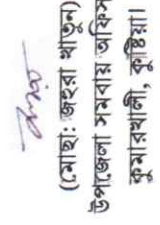 (মোছা: জহুরা খাতুন)
উপজেলা সমবায় অফিস
কুমারখালী, কুষ্টিয়া।